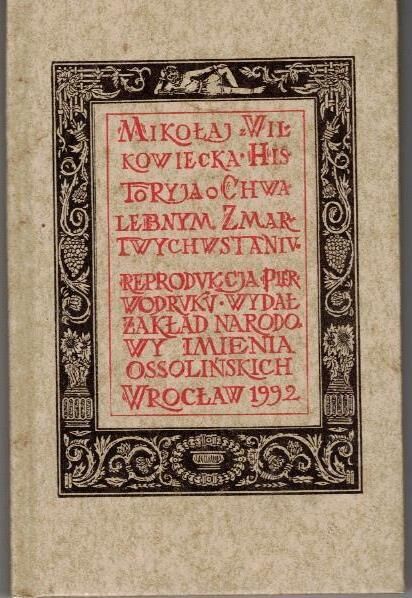 MIKOŁAJ Z WIL-
KOWIECKA · HIS
TORYJA O CHWA
LEBNYM ZMAR-
TWYCHWSTANIU·
REPRODUKCJA PIER
WODRUKU · WYDAŁ
ZAKŁAD NARODO·
WY IMIENIA
OSSOLIŃSKICH
WROCŁAW 1992